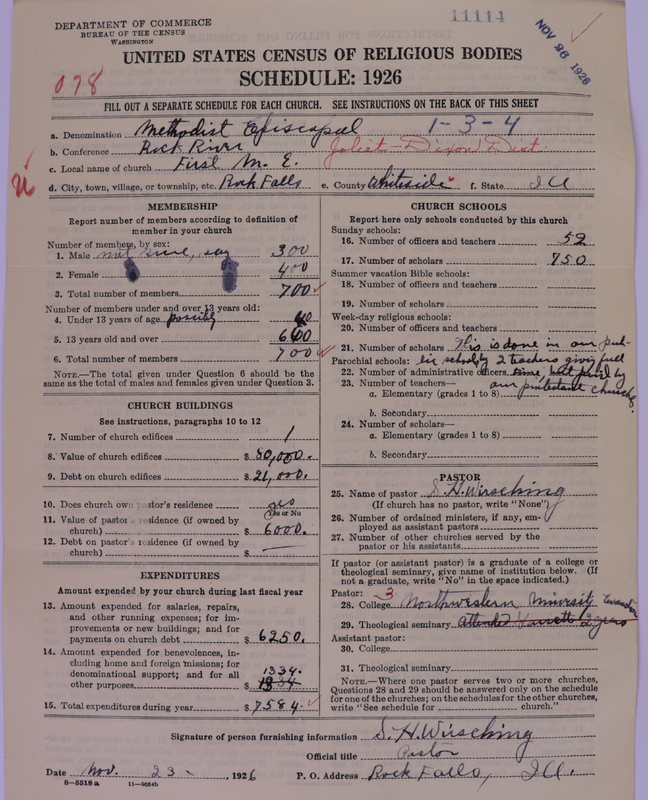 11114
DEPARTMENT OF COMMERCE
BUREAU OF THE CENSUS
WASHINGTON
NOV 26 1926
UNITED STATES CENSUS OF RELIGIOUS BODIES
SCHEDULE: 1926
078
FILL OUT A SEPARATE SCHEDULE FOR EACH CHURCH. SEE INSTRUCTIONS ON THE BACK OF THIS SHEET
a. Denomination Methodist Episcopal 1-3-4
b. Conference Rock River Joliet-Dixon Dist.
c. Local name of church First M. E.
d. City, town, village, or township, etc. Rock Falls e. County Whiteside f. State Ill
MEMBERSHIP
Report number of members according to definition of
member in your church
Number of members, by sex:
1. Male not sure, say 300
2. Female 400
3. Total number of members 700
Number of members under and over 13 years old:
4. Under 13 years of age possibly 40
5. 13 years old and over 660
6. Total number of members 700
NOTE.—The total given under Question 6 should be
same as the total of males and females given under Question 3.
CHURCH BUILDINGS
See instructions, paragraphs 10 to 12
7. Number of church edifices 1
8. Value of church edifices $ 80,000.
9. Debt on church edifices $ 21,000.
10. Does church own pastor's residence yes
Yes or No
11. Value of pastor's residence (if owned by
church) $ 6000.
12. Debt on pastor's residence (if owned by
church) $ —
EXPENDITURES
Amount expended by your church during last fiscal year
13. Amount expended for salaries, repairs,
and other running expenses; for im-
provements or new buildings; and for
payments on church debt $ 6250.
14. Amount expended for benevolences, in-
cluding home and foreign missions; for
denominational support; and for all
1334.
other purposes $ 1334
15. Total expenditures during year $ 7584.
CHURCH SCHOOLS
Report here only schools conducted by this church
Sunday schools:
16. Number of officers and teachers 52
17. Number of scholars 750
Summer vacation Bible schools:
18. Number of officers and teachers
19. Number of scholars
Week-day religious schools:
20. Number of officers and teachers
21. Number of scholars This is done in our pub-
Parochial schools: lic schools by 2 teachers giving full
22. Number of administrative officers time, but paid by
23. Number of teachers— our protestant churches.
a. Elementary (grades 1 to 8)
b. Secondary
24. Number of scholars—
a. Elementary (grades 1 to 8)
b. Secondary
PASTOR
25. Name of pastor S. H. Wirsching
(If church has no pastor, write "None")
26. Number of ordained ministers, if any, em-
ployed as assistant pastors
27. Number of other churches served by the
pastor or his assistants
If pastor (or assistant pastor) is a graduate of a college or
theological seminary, give name of institution below. (If
not a graduate, write "No" in the space indicated.)
Pastor: 3
28. College Northwestern University Evanston
29. Theological seminary attended Garrett 2 years
Assistant pastor:
30. College
31. Theological seminary
NOTE.—Where one pastor serves two or more churches,
Questions 28 and 29 should be answered only on the schedule
for one of the churches; on the schedules for the other churches,
write "See schedule for church."
Signature of person furnishing information S. H. Wirsching
Official title Pastor
Date Nov. 23, 1926 P. O. Address Rock Falls, Ill.
8-5518a 11-9054b